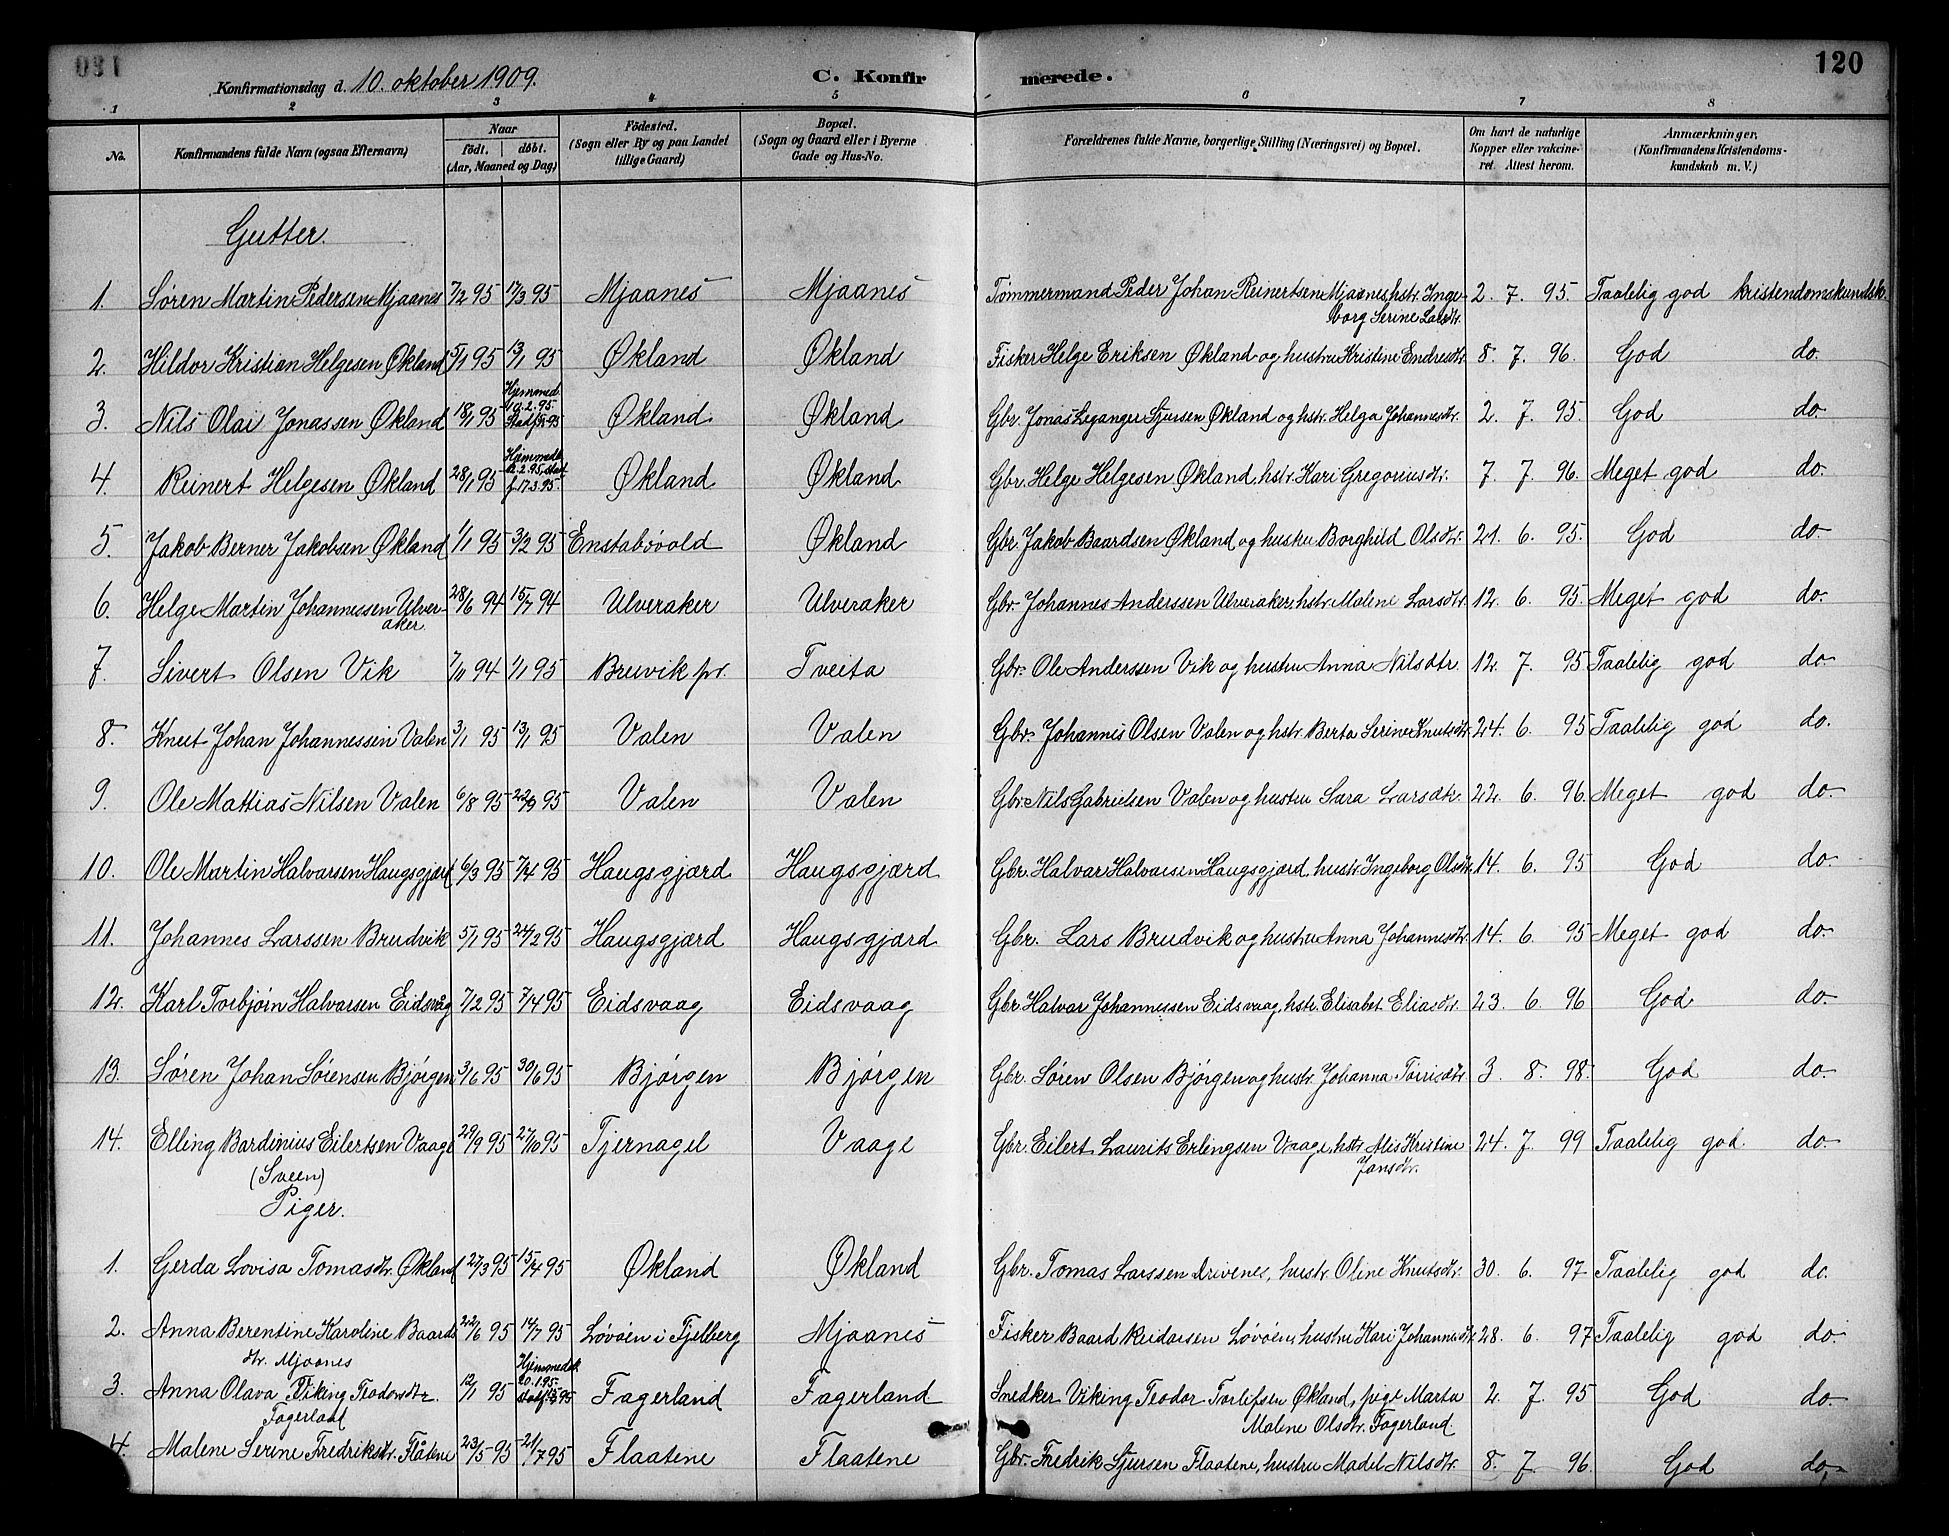 Konfirmationsdag d. 10. oktober 1909. C. Konfirmerede. 120
1 2 3 4 5 6 7 8
No. Konfirmandens fulde Navn (ogsaa Efternavn) Naar födt. döbt. (Aar, Maaned og Dag) Födested. (Sogn eller By og paa Landet tillige Gaard) Bopæl. (Sogn og Gaard eller i Byerne Gade og Hus-No. Forældrenes fulde Navne, borgerlige Stilling (Næringsvei) og Bopæl. Om havt de naturlige Kopper eller vakcineret. Attest herom. Anmærkninger. (Konfirmandens Kristendomskundskab m. V.)
Gutter.
1. Søren Martin Pedersen Mjaanes 7/2 95 17/3 95 Mjaanes Mjaanes Tømmermand Peder Johan Reinertsen Mjaanes, hstr. Ingeborg Serine Larsdtr. 2. 7. 95. Taalelig god kristendomskundsk.
2. Hildor Kristian Helgesen Økland 5/1 95 13/1 95 Økland Økland Fisker Helge Eriksen Økland og hustru Kristine Endresdtr. 8. 7. 96. God do.
3. Nils Olai Jonassen Økland 18/1 95 Hjemmed. 19.2.95. Økland Økland Gbr. Jonas Leganger Sjursen Økland og hstr. Helga Johannesdtr. 2. 7. 95. God do.
4. Reinert Helgesen Økland 28/1 95 Hjemmedt. 12.2.95, stadf. 17.3.95. Økland Økland Gbr. Helge Helgesen Økland, hstr. Kari Gregoriusdtr. 7. 7. 96. Meget god do.
5. Jakob Berner Jakobsen Økland 1/1 95 3/2 95 Enstabövold Økland Gbr. Jakob Baardsen Økland og hustru Borghild Olsdtr. 21. 6. 95. God do.
6. Helge Martin Johannessen Ulveraker. 28/6 94 15/7 94 Ulveraker Ulveraker Gbr. Johannes Anderssen Ulveraker, hstr. Malene Larsdtr. 12. 6. 95. Meget god do.
7. Sivert Olsen Vik 7/11 94 1/1 95 Bruvik pr. Tveita Gbr. Ole Anderssen Vik og hustru Anna Nilsdtr. 12. 7. 95 Taalelig god do.
8. Knut Johan Johannessen Valen 3/1 95 13/1 95 Valen Valen Gbr. Johannes Olsen Valen og hstr. Berta Serine Knutsdtr. 24. 6. 95 Taalelig god do.
9. Ole Mattias Nilsen Valen 6/8 95 22/9 95 Valen Valen Gbr. Nils Gabrielsen Valen og hustru Sara Larsdtr. 22. 6. 96. Meget god do.
10. Ole Martin Halvarsen Haugsgjærd 6/3 95 7/4 95 Haugsgjærd Haugsgjærd Gbr. Halvar Halvarsen Haugsgjærd, hustr. Ingeborg Olsdtr. 14. 6. 95 God do.
11. Johannes Larssen Brudvik 5/1 95 24/2 95 Haugsgjærd Haugsgjærd Gbr. Lars Brudvik og hustru Anna Johannesdtr. 14. 6. 95 Meget god do.
12. Karl Torbjørn Halvarsen Eidsvåg 7/2 95 7/4 95 Eidsvaag Eidsvaag Gbr. Halvar Johannessen Eidsvaag, hstr. Elisabet Eliasdtr. 23. 6. 96 God do.
13. Søren Johan Sørensen Bjørgen 3/6 95 30/6 95 Bjørgen Bjørgen Gbr. Søren Olsen Bjørgen og hustr. Johanna Tørrisdtr. 3. 8. 98. God do.
14. Elling Bardinius Eilertsen Vaage (Sveen) 29/9 95 27/10 95 Tjernagel Vaage Gbr. Eilert Laurits Erlingsen Vaage, hstr. Alis Kristine Jansdtr. 24. 7. 99 Taalelig god. do.
Piger.
1. Gerda Lovisa Tomasdtr. Økland 27/3 95 15/4 95 Økland Økland Gbr. Tomas Larssen Drivenes, hustr. Oline Knutsdtr. 30. 6. 97 Taalelig god do.
2. Anna Berentine Karoline Baardsdtr. Mjaanes 22/6 95 14/7 95 Løvöen i Fjelberg Mjaanes Fisker Baard Reidarsen Løvöen, hustru Kari Johannesdtr. 28. 6. 97 Taalelig god do.
3. Anna Olava Viking Teodorsdtr. Fagerland 12/1 95 Hjemmedøbt 20.1.95. Fagerland Fagerland Snedker Viking Teodor Torleifsen Økland, pige Marta Malene Olsdtr. Fagerland 2. 7. 95 God do.
4. Malene Serine Fredriksdtr. Flåtene 23/5 95 21/7 95 Flaatene Flaatene Gbr. Fredrik Sjursen Flaatene, hustru Madel Nilsdtr. 8. 7. 96 God do.